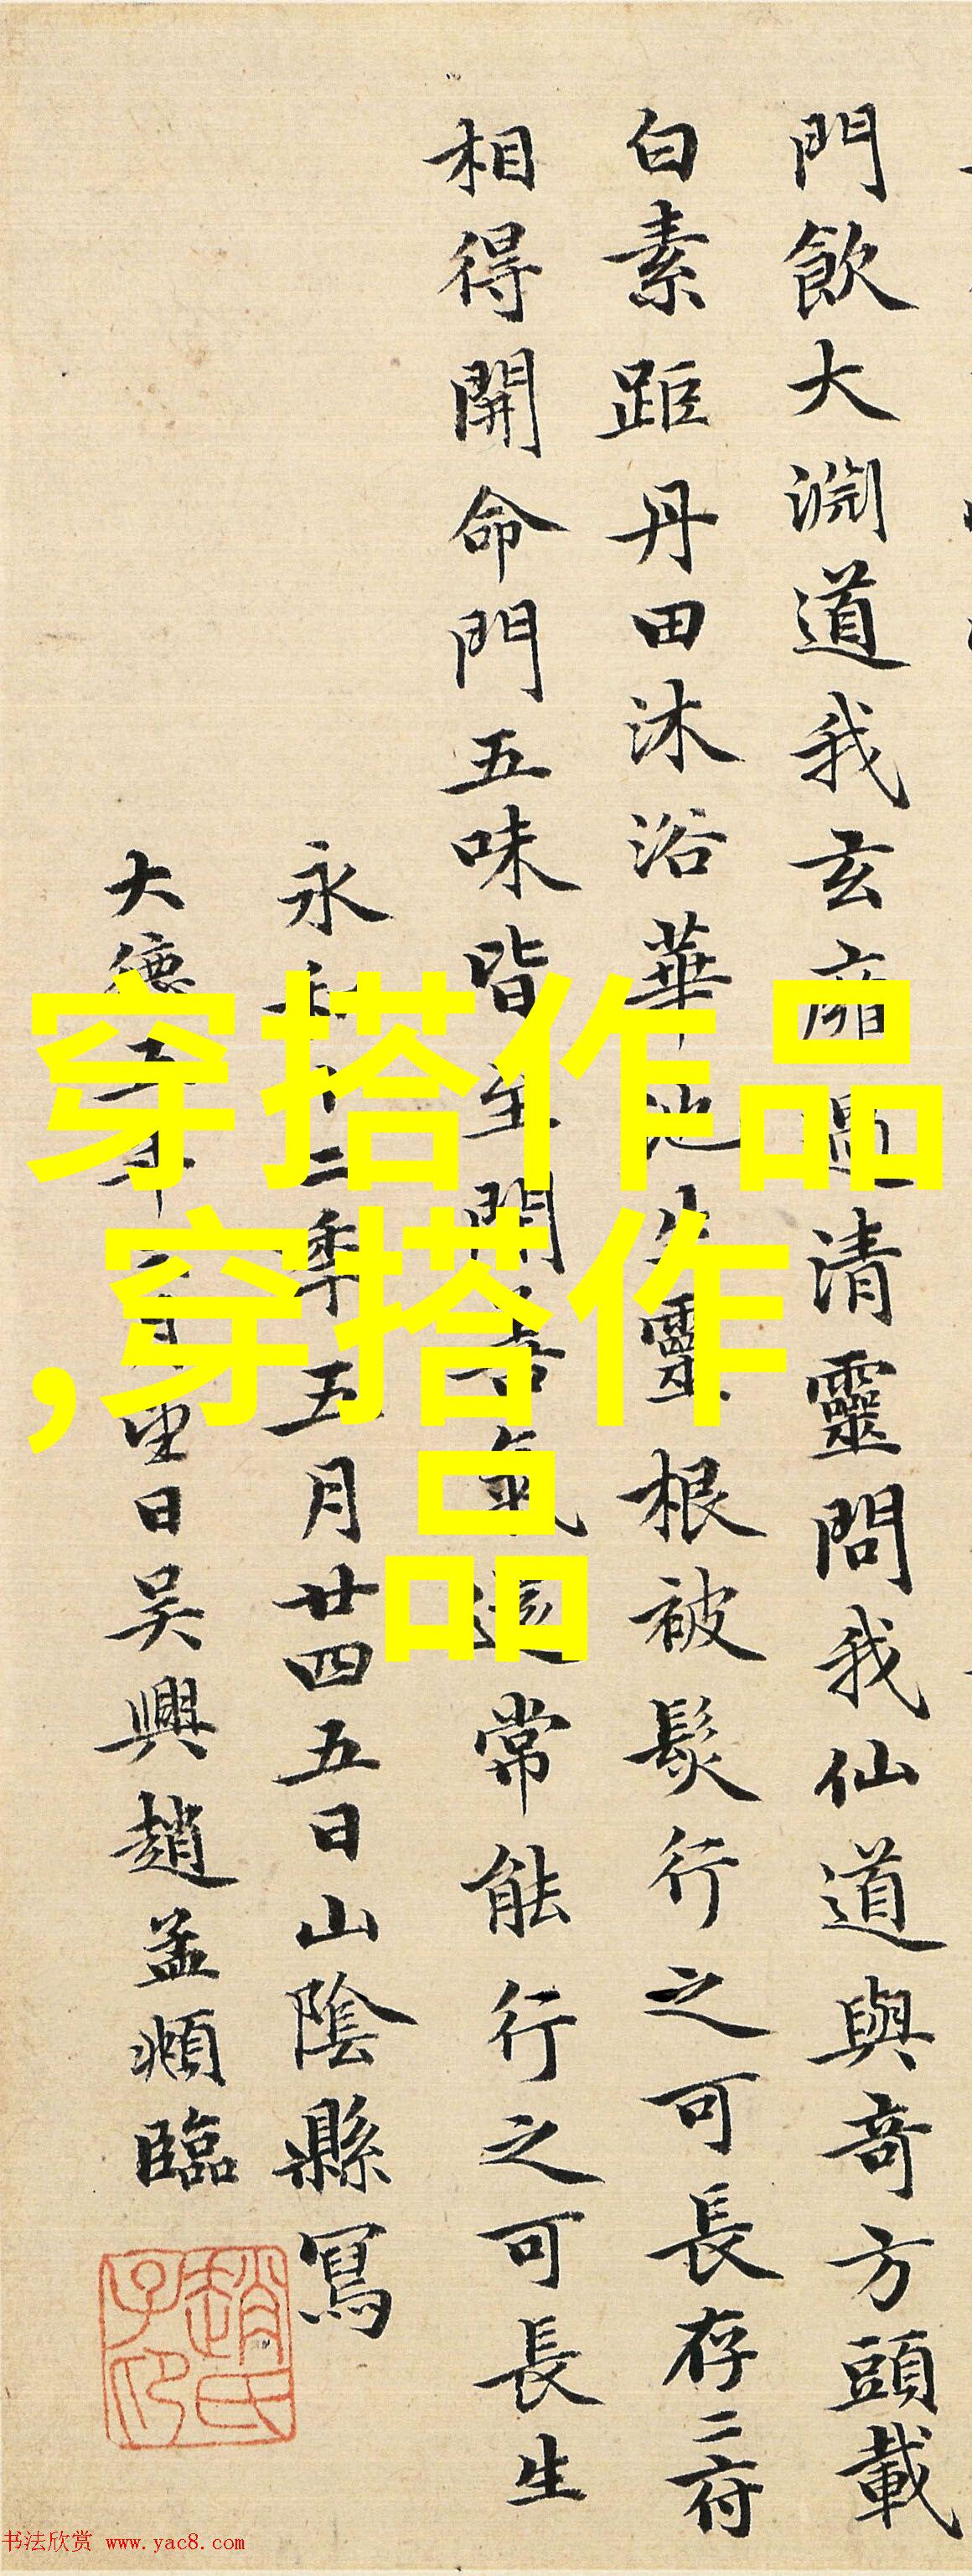 門飲大淵道我玄廱過清靈問我仙道與奇方頭載
白素距丹田沐浴華池生靈根被髮行之可長存二府
相得開命門五味皆至開善氣還常能行之可長生
永和十二年五月廿四五日山陰縣寫
大德五年二月望日吳興趙孟頫臨
趙氏子印
穿搭作品
,穿搭作
品
书法欣赏 www.yac8.com